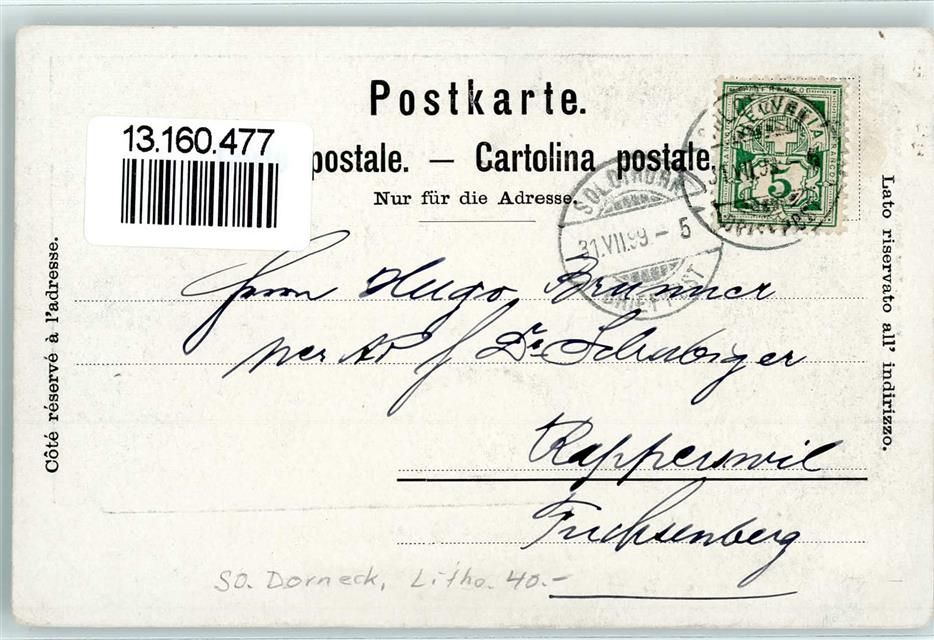 Postkarte.
13.160.477
postale. — Cartolina postale.
Nur für die Adresse.
HELVETIA
5
SOLOTHURN
31.VII.99 - 5
BRIEFPOST
Herrn Hugo Brunner
per Ad f Dr. Schubiger
Rapperswil
Fuchsenberg
Côté réservé à l'adresse.
Lato riservato all' indirizzo.
SO. Dorneck, Litho. 40.-